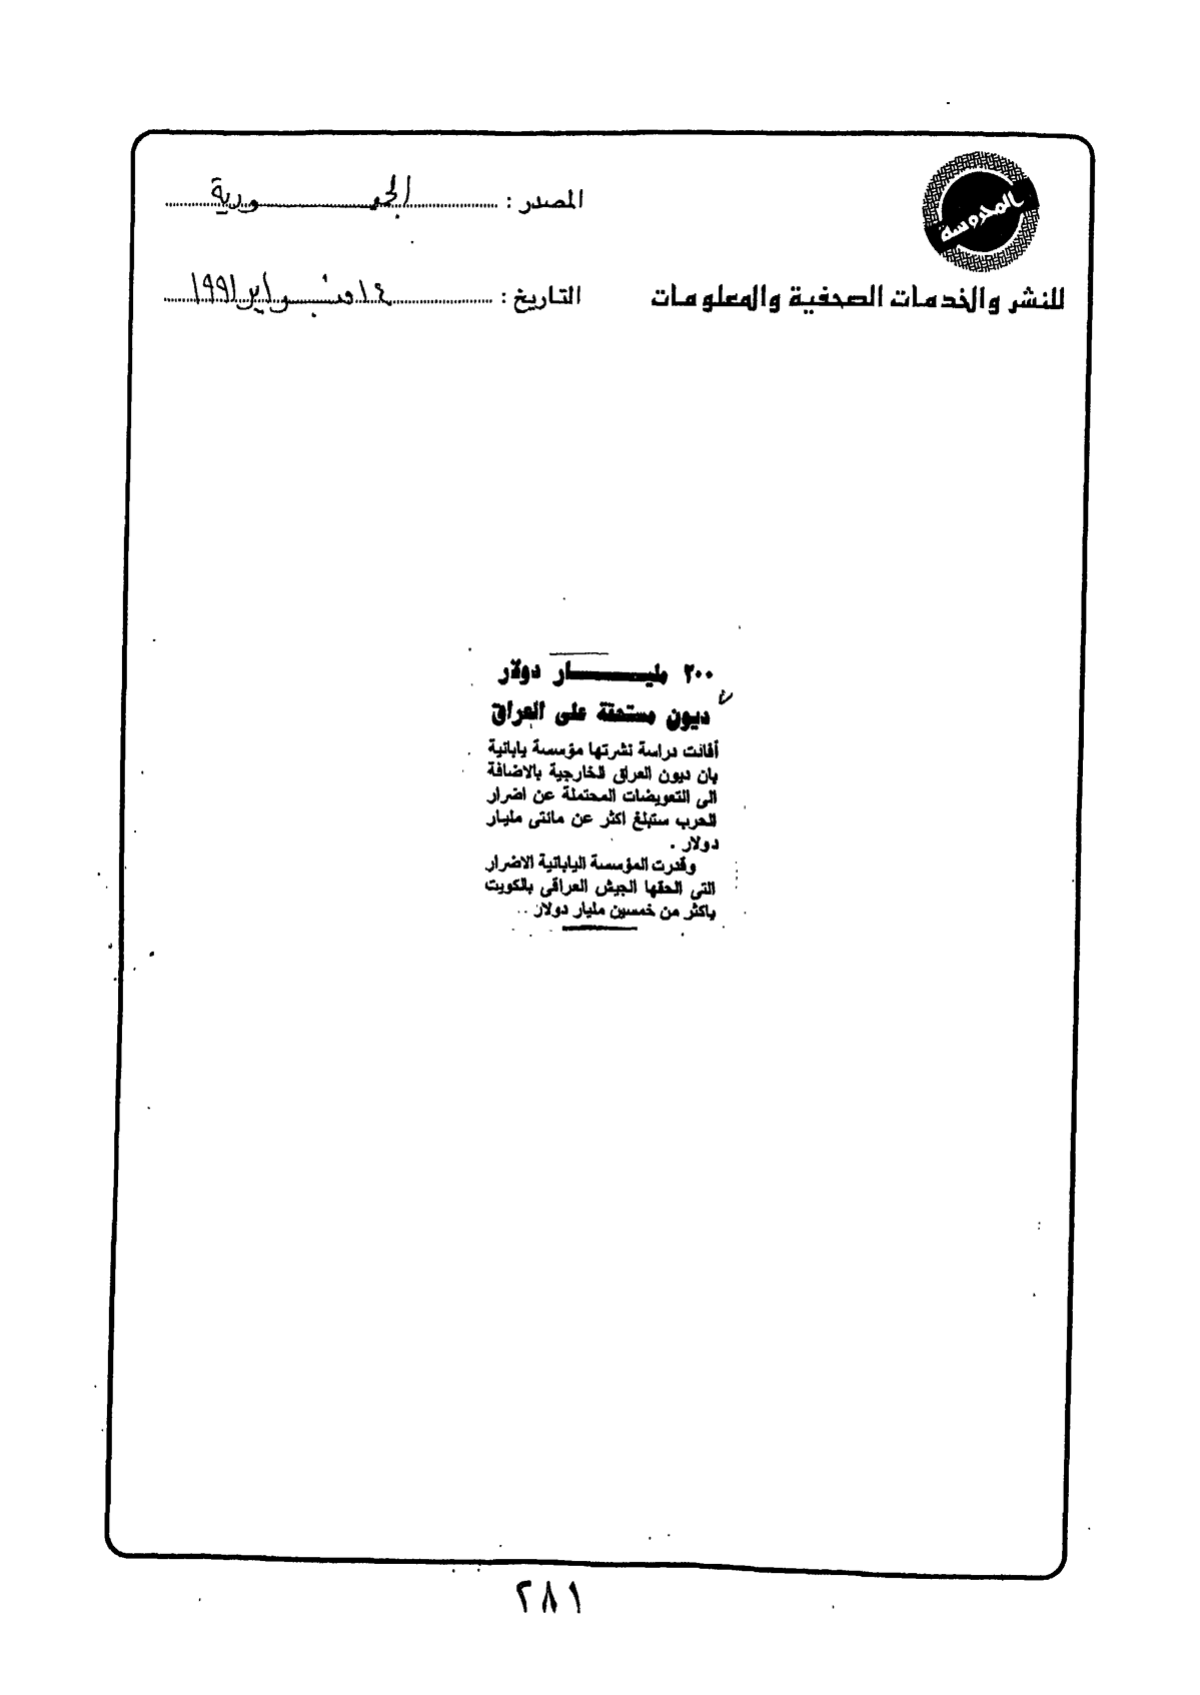 المحروسة
للنشر والخدمات الصحفية والمعلومات
المصدر : الجمهورية
التاريخ : ١٤ فبراير ١٩٩١
٢٠٠ مليار دولار
ديون مستحقة على العراق
أفادت دراسة نشرتها مؤسسة يابانية
بان ديون العراق الخارجية بالاضافة
الى التعويضات المحتملة عن اضرار
الحرب ستبلغ اكثر عن مائتى مليار
دولار .
وقدرت المؤسسة اليابانية الاضرار
التى الحقها الجيش العراقى بالكويت
باكثر من خمسين مليار دولار ..
٢٨١